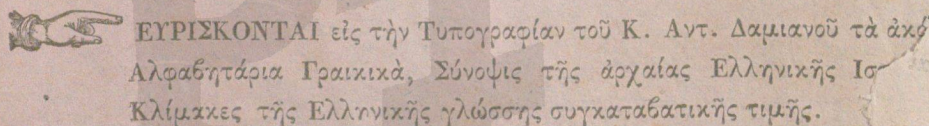 ΕΥΡΙΣΚΟΝΤΑΙ εἰς τὴν Τυπογραφίαν τοῦ Κ. Ἀντ. Δαμιανοῦ τὰ
Ἀλφαβητάρια Γραικικὰ, Σύνοψις τῆς ἀρχαίας Ἑλληνικῆς
Κλίμακες τῆς Ἑλληνικῆς γλώσσης συγκαταβατικῆς τιμῆς.